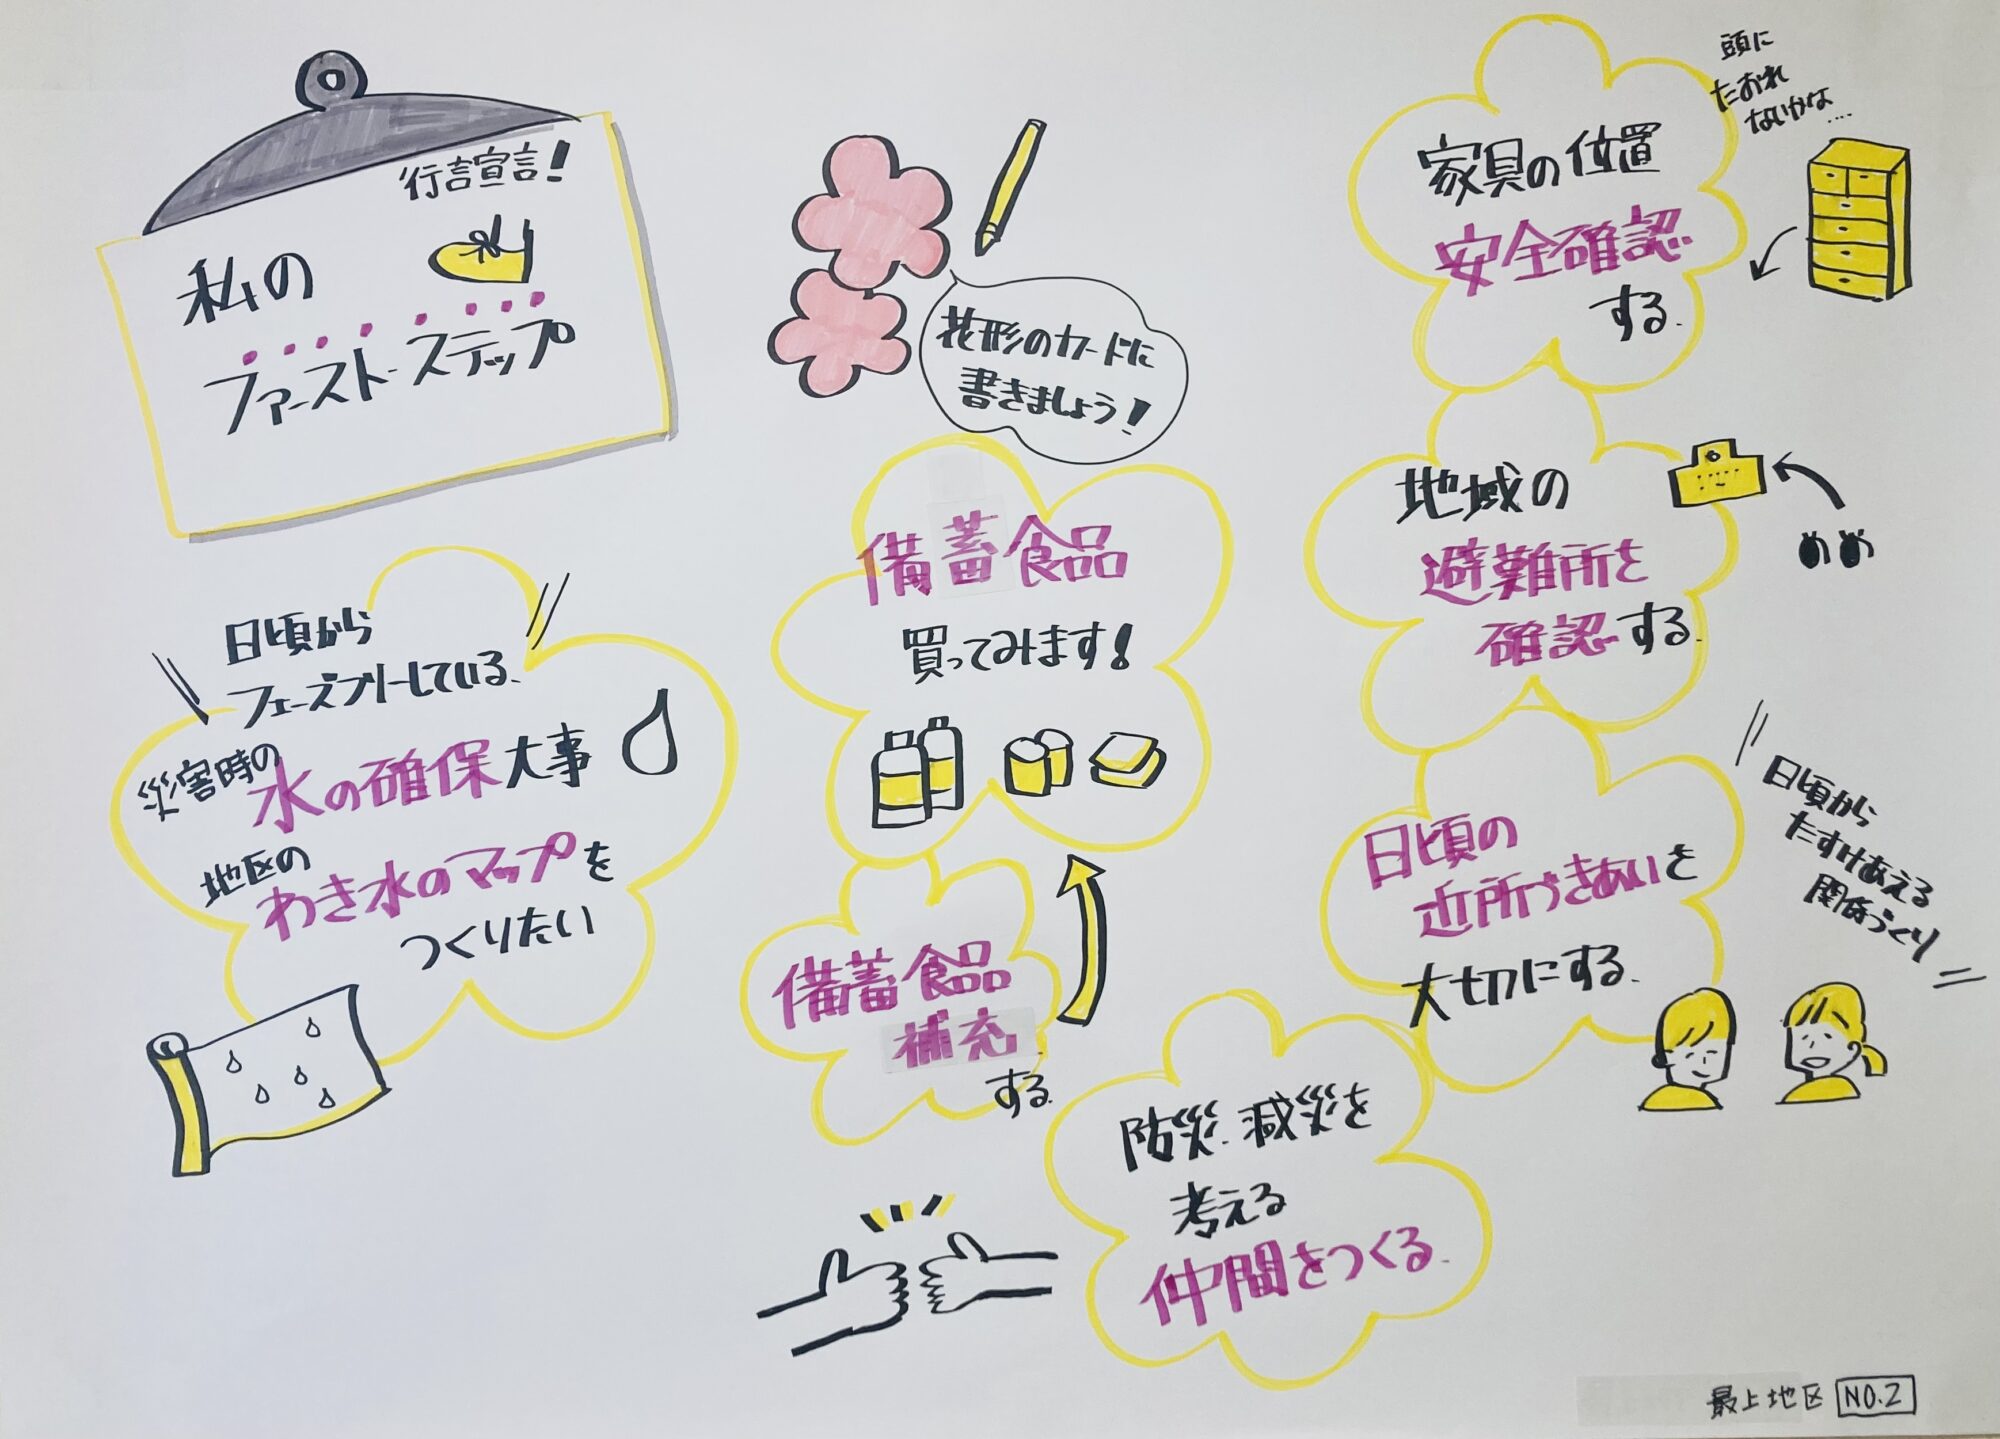 行言宣言!
私の
ファーストステップ
花形のカードに
書きましょう!
日頃から
フェーズフリーしている、
災害時の
水の確保大事
地区の
わき水のマップを
つくりたい
備蓄食品
買ってみます!
備蓄食品
補充
する
頭に
たおれ
ないかな....
家具の位置
安全確認
する.
地域の
避難所を
確認する.
めめ
日頃の
近所づきあいを
大切にする.
日頃から
たすけあえる
関係づくり
防災.減災を
考える
仲間をつくる.
最上地区 NO.2